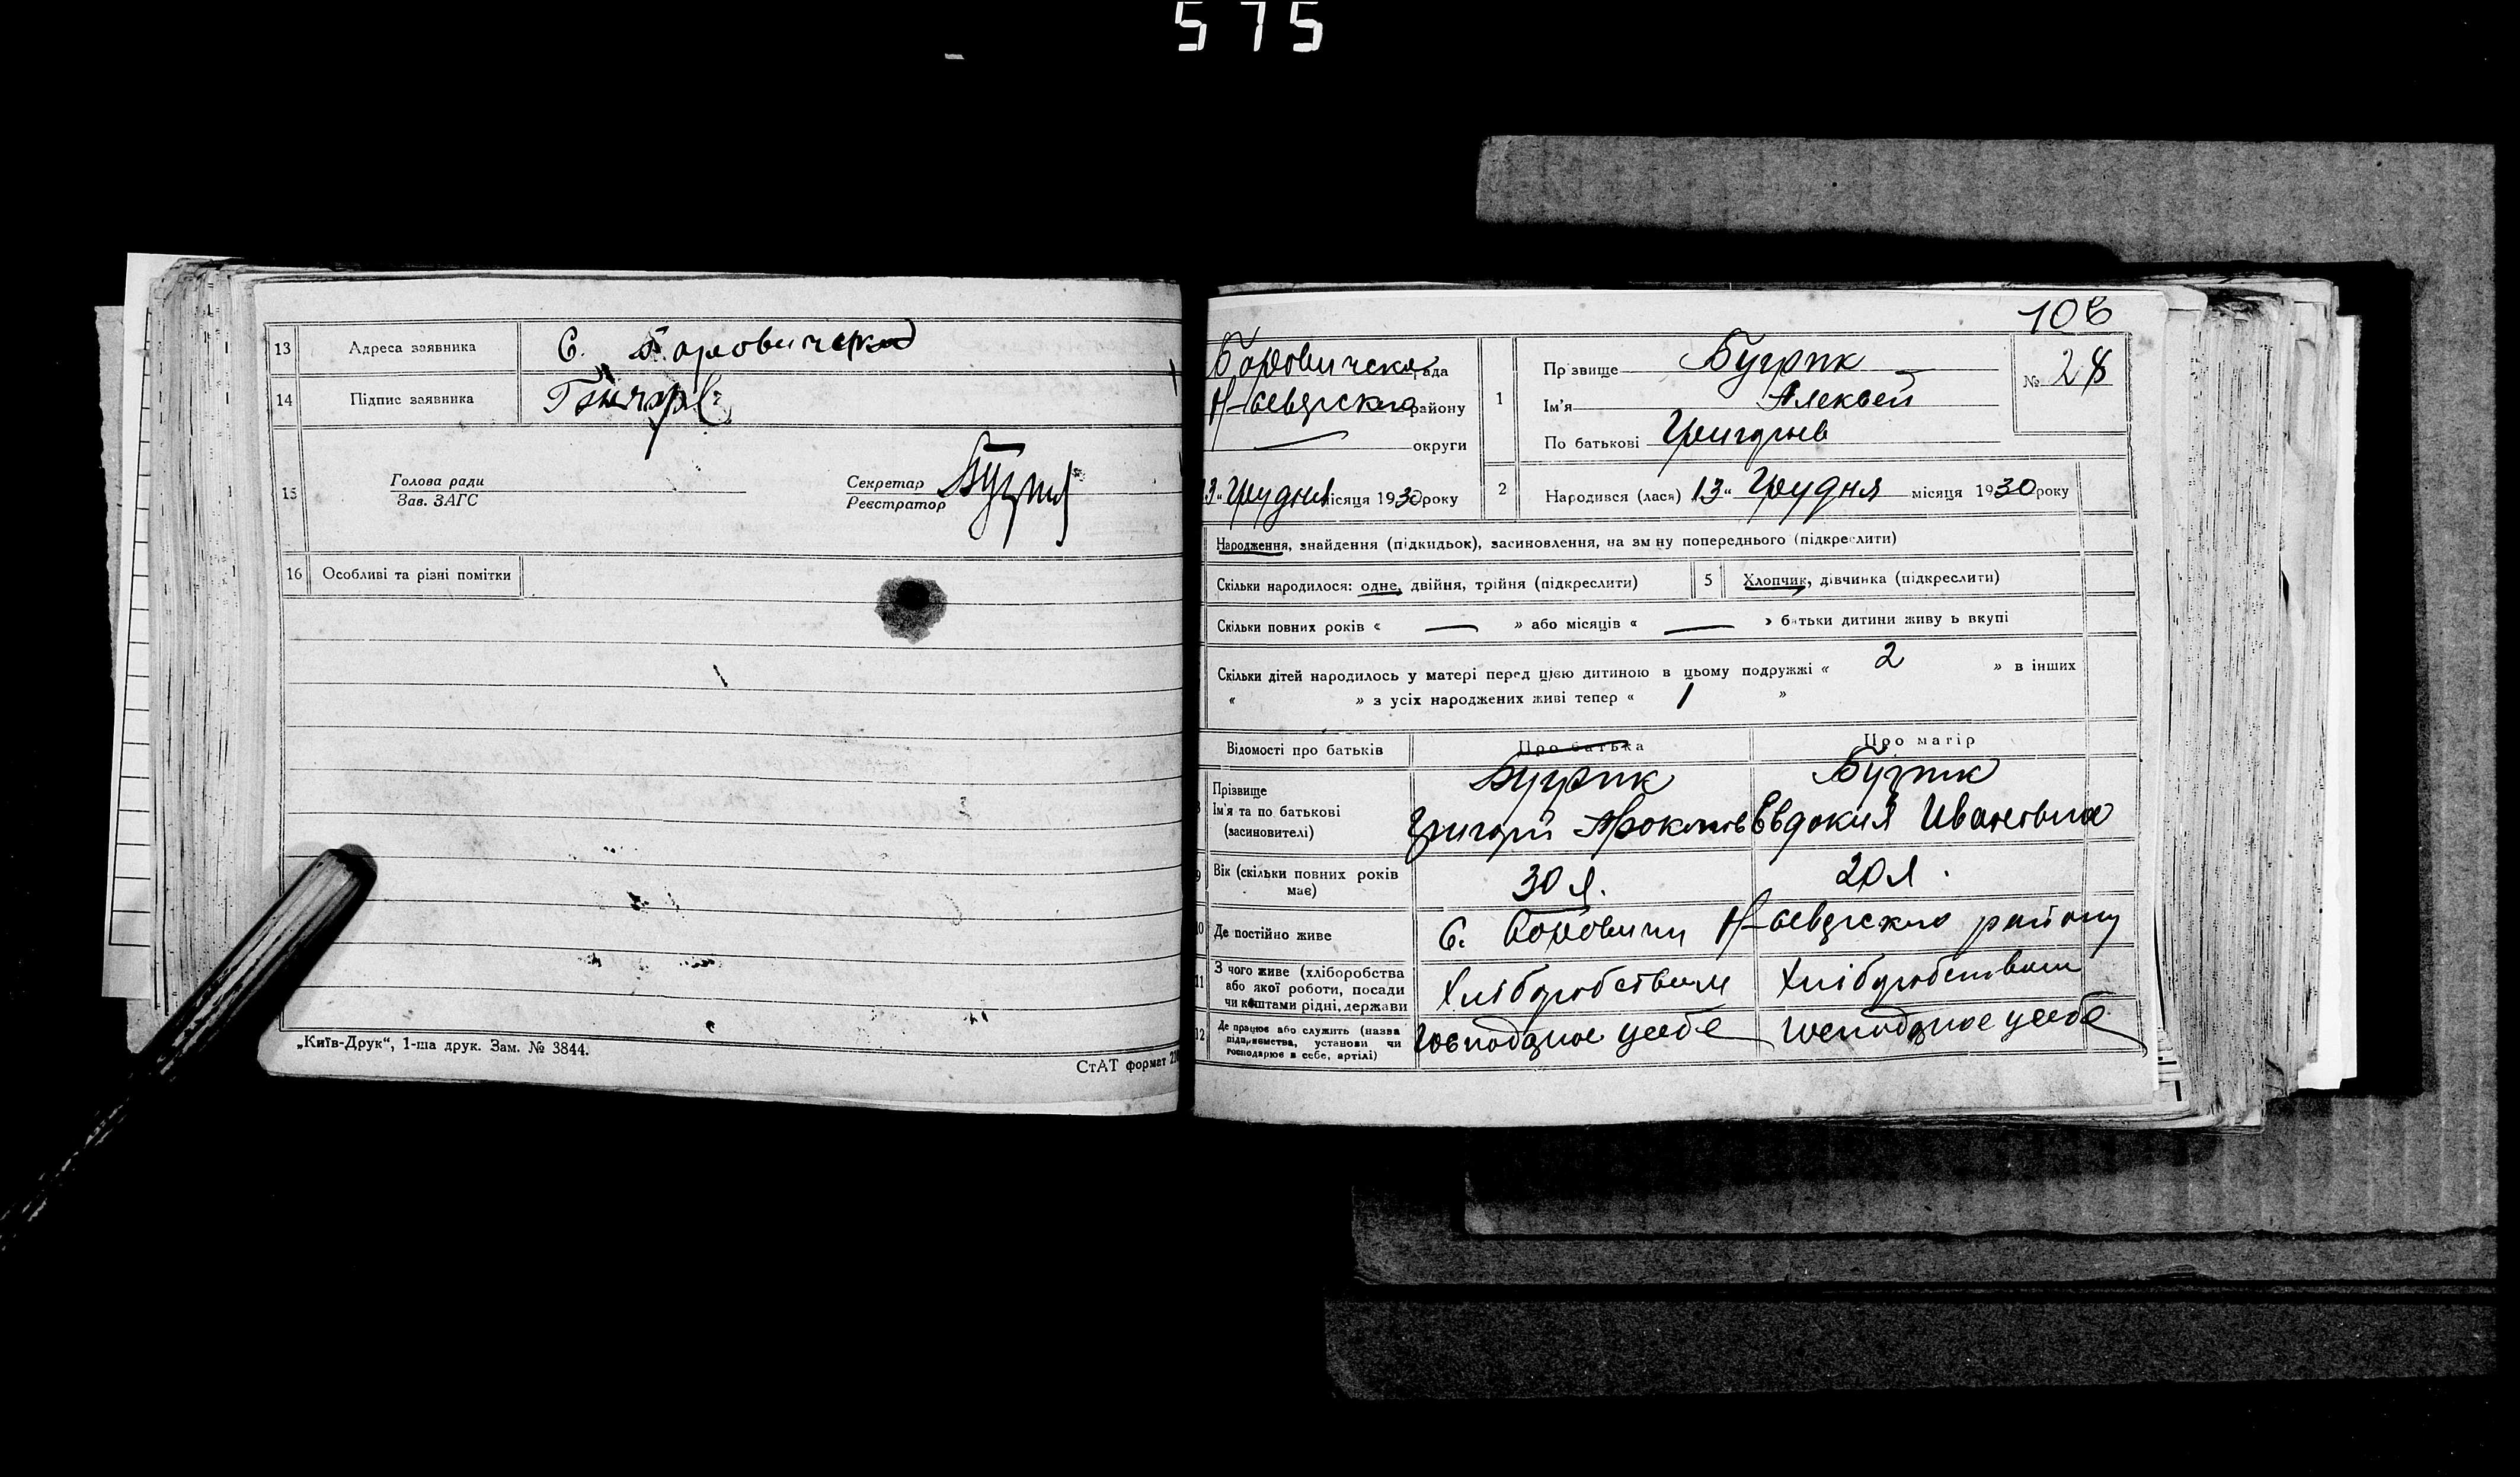 575
13 Адреса заявника С.
14 Підпис заявника
15 Голова ради
Зав. ЗАГС
Секретар
Реєстратор
16 Особливі та різні помітки
„Київ-Друк“, 1-ша друк. Зам. № 3844.
СтАТ формат
106
рада
району
округи
13 „ Грудня місяця 1930 року
1 Прізвище Бугрик
Ім'я Алексей
По батькові Григорів
№ 28
2 Народився (лася) 13 „ Грудня місяця 1930 року
Народження, знайдення (підкидьок), засиновлення, на зміну попереднього (підкреслити)
Скільки народилося: одне, двійня, трійня (підкреслити) 5 Хлопчик, дівчинка (підкреслити)
Скільки повних років « — » або місяців « — » батьки дитини живуть вкупі
Скільки дітей народилось у матері перед цією дитиною в цьому подружжі « 2 » в інших
« » з усіх народжених живі тепер « 1 »
Відомості про батьків Про батька Про матір
Прізвище Бугрик Бугрик
Ім'я та по батькові
(засиновителі) Григорій Евдокия Ивановна
9 Вік (скільки повних років
має) 30 л. 20 л.
10 Де постійно живе С. Боровичи району
11 З чого живе (хліборобства
або якої роботи, посади
чи коштами рідні, держави Хліборобством Хліборобством
12 Де працює або служить (назва
підприємства, установи чи
господарює в себе, артілі)